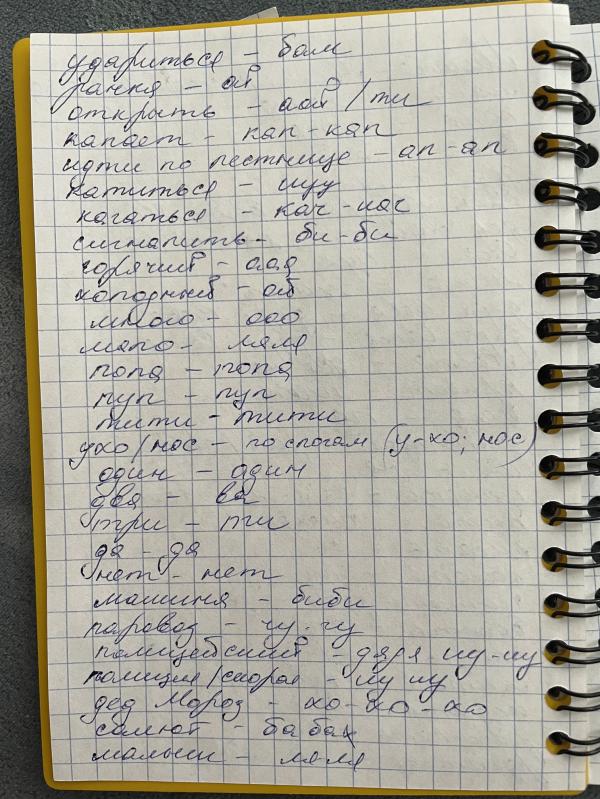 удариться - бам
ранка - ой
открыть - аой / ти
капает - кап-кап
идти по лестнице - ап-ап
катиться - иуу
качаться - кач-кач
сигналить - би-би
горячий - ааа
холодный - ой
много - ооо
мало - мяля
попа - попа
пуп - пуп
тити - тити
ухо/нос - по слогам (у-хо; нос)
один - адин
два - ва
три - ти
да - да
нет - нет
машина - биби
паровоз - чу-чу
полицейский - дядя иу-иу
полиция/скорая - иу иу
дед Мороз - хо-хо-хо
салют - бабах
малыш - ляля